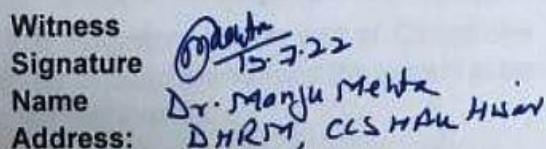 Witness
Signature Mehta 15.7.22
Name Dr. Manju Mehta
Address: DHRM, CCS HAU Hisar